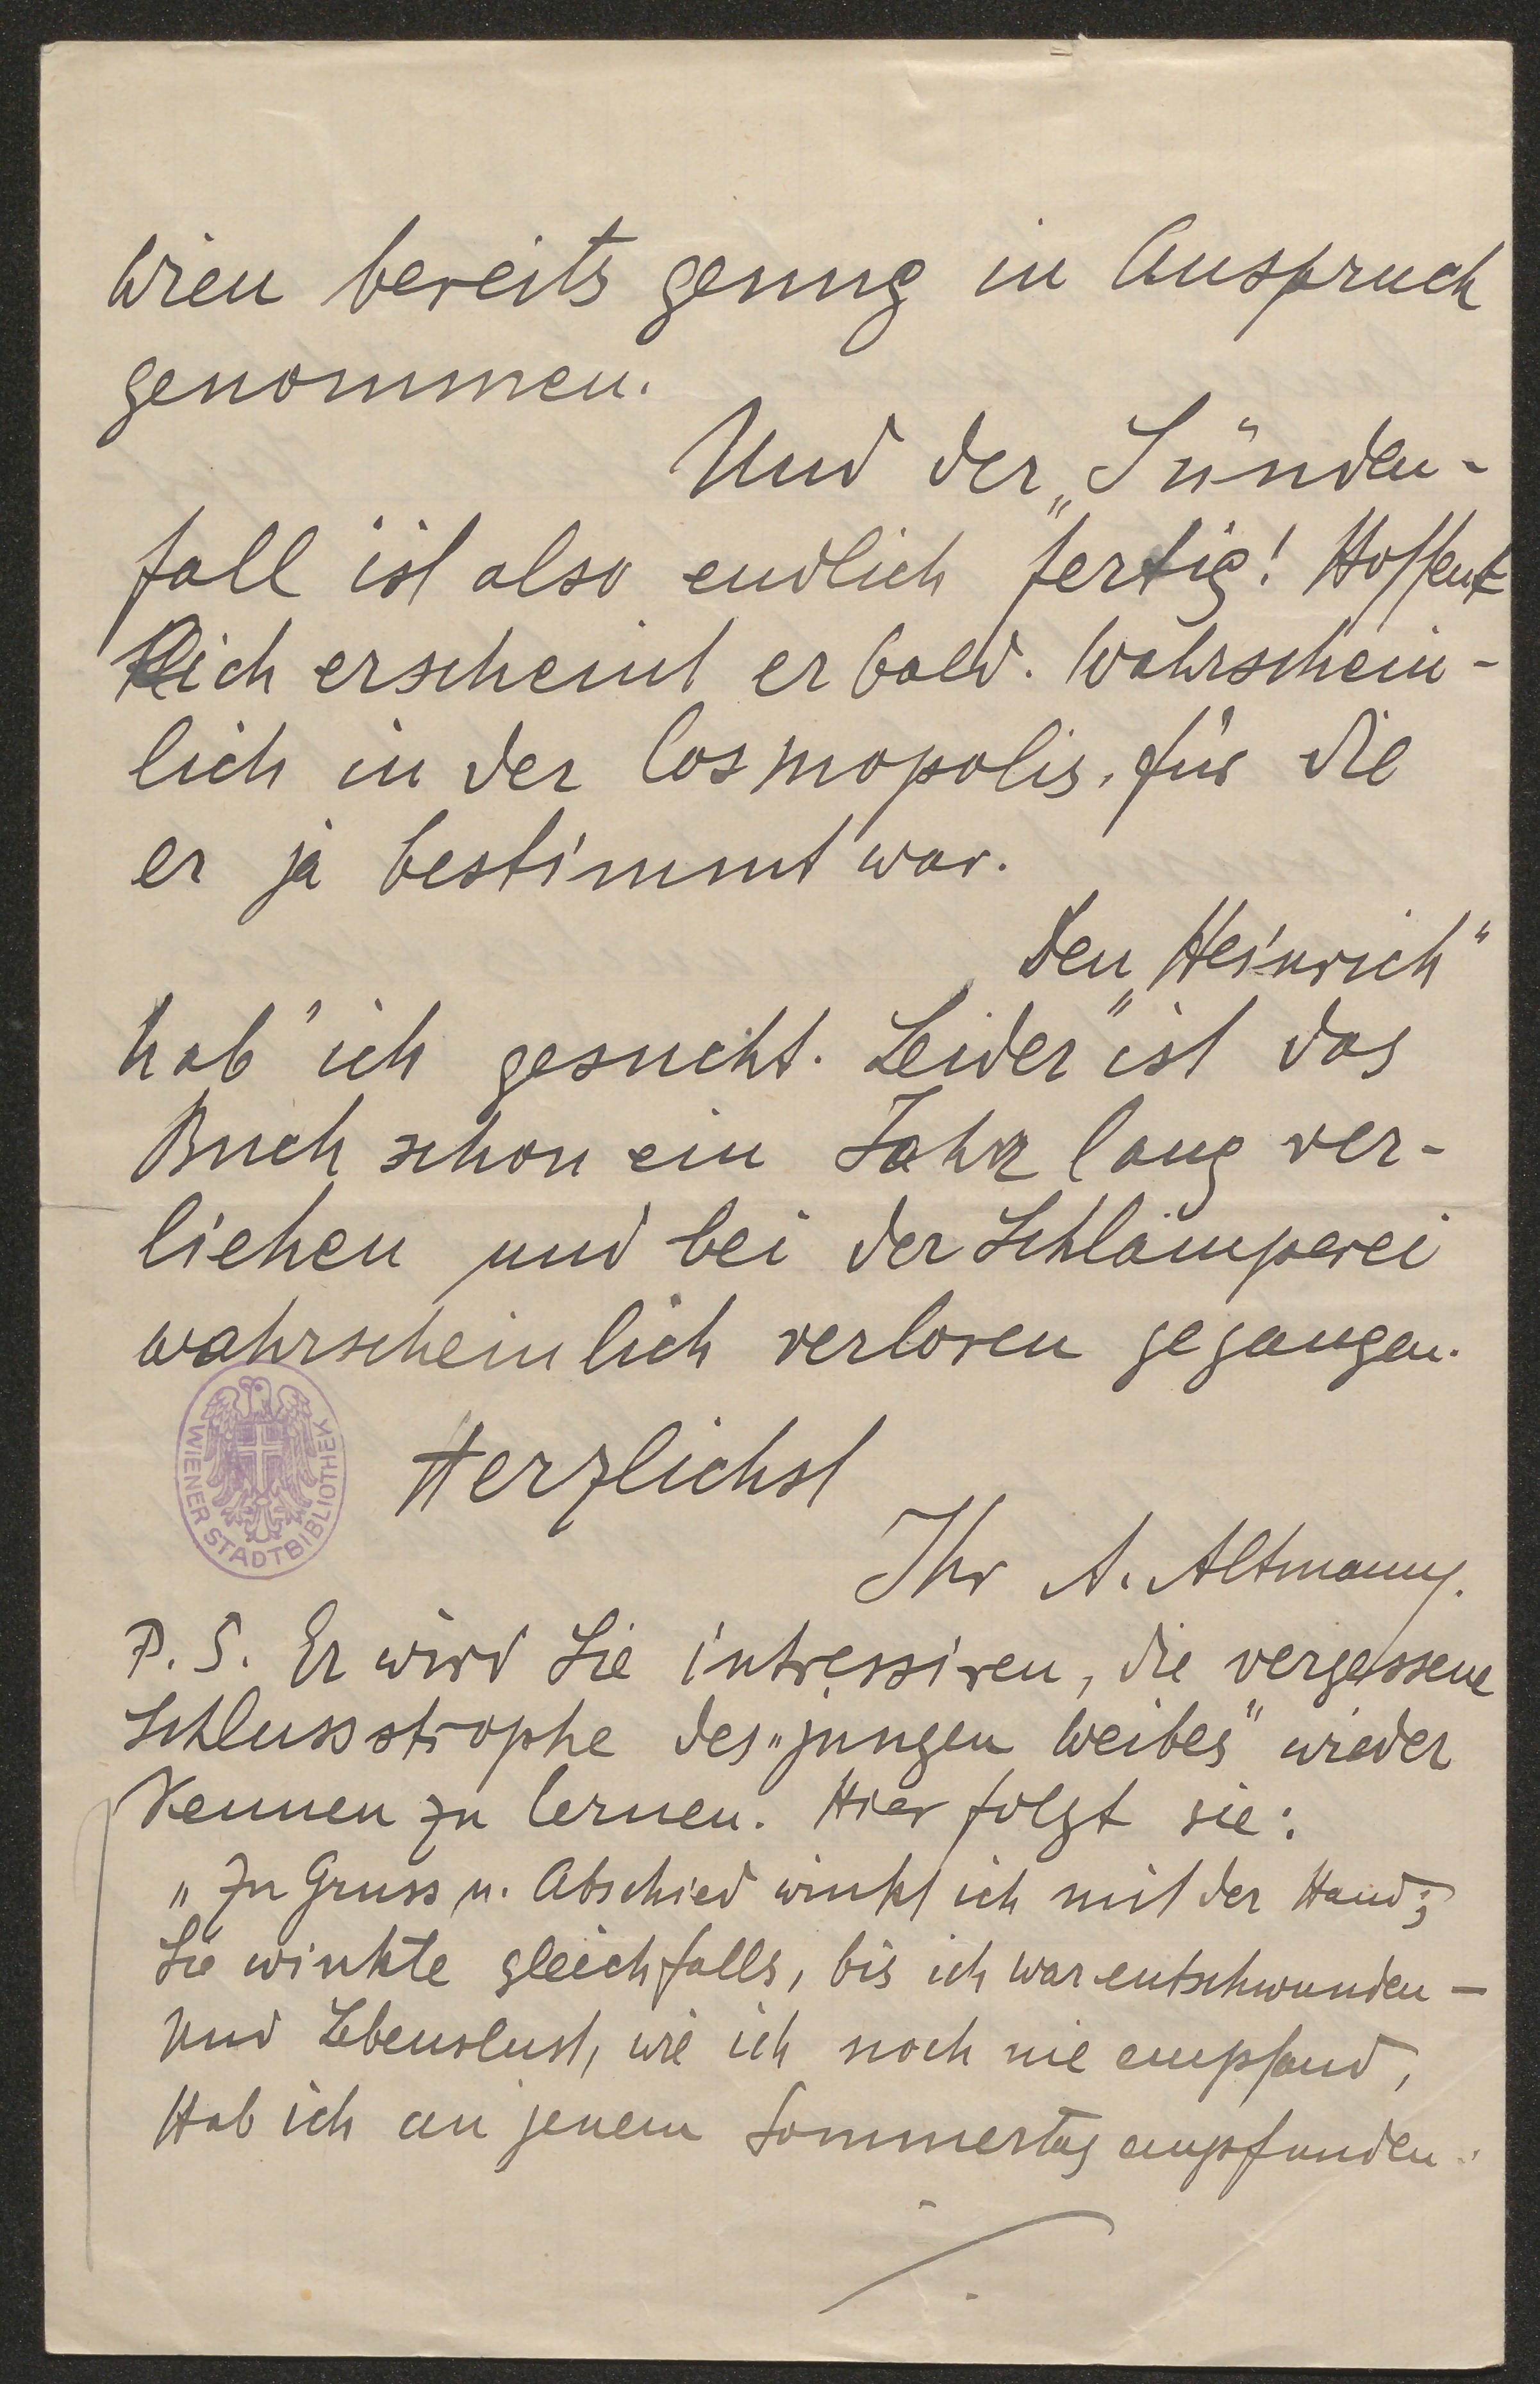 Wien bereits genug in Anspruch
genommen.
Und der „Sünden-
fall ist also endlich fertig! Hoffent-
lich erscheint er bald. Wahrschein-
lich in der Cosmopolis, für die
er ja bestimmt war.
Den „Heinrich“
hab' ich gesucht. Leider ist das
Buch schon ein Jahr lang ver-
liehen und bei der Schlamperei
wahrscheinlich verloren gegangen.
Herzlichst
Ihr A. Altmann.
WIENER STADTBIBLIOTHEK
P.S. Er wird Sie intressiren, die vergessene
Schlussstrophe des „jungen Weibes“ wieder
kennen zu lernen. Hier folgt sie:
„Zu Gruss u. Abschied winkt ich mit der Hand;
Sie winkte gleichfalls, bis ich war entschwunden –
Und Lebenslust, wie ich noch nie empfand,
Hab ich an jenem Sommertag empfunden.